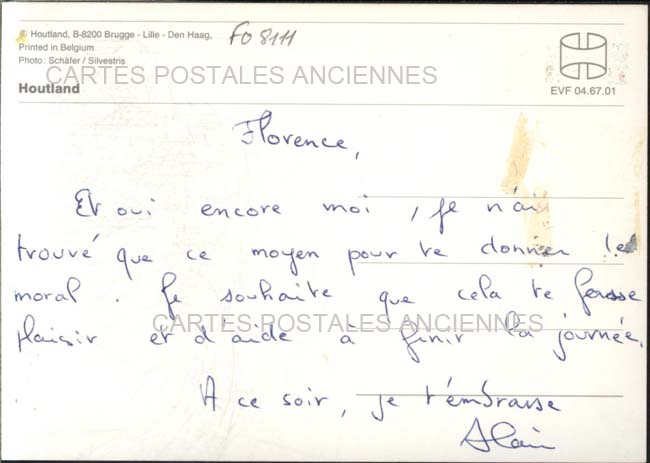 © Houtland, B-8200 Brugge - Lille - Den Haag,
Printed in Belgium
Photo: Schäfer / Silvestris
Houtland
FO 8111
EVF 04.67.01
CARTES POSTALES ANCIENNES
Florence,
Et oui encore moi, je n'ai
trouvé que ce moyen pour te donner le
moral. Je souhaite que cela te fasse
plaisir et d'aide à finir la journée.
CARTES POSTALES ANCIENNES
A ce soir, je t'embrasse
Alain